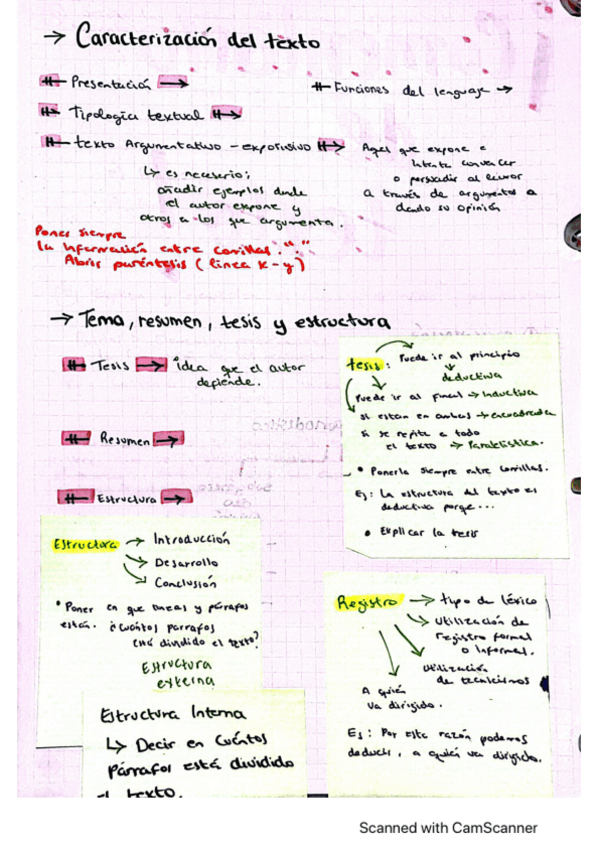 → Caracterización del texto
# Presentación →
# Funciones del lenguaje →
# Tipología textual →
# texto Argumentativo - expositivo →
Aquel que expone e
intenta convencer
o persuadir al lector
a través de argumentos o
dando su opinión
↳ es necesario;
añadir ejemplos donde
el autor expone y
otros a los que argumenta.
Poner siempre
la información entre comillas. "."
Abrir paréntesis (linea x-y)
→ Tema, resumen, tesis y estructura
# Tesis → idea que el autor
defiende.
# Resumen →
# Estructura →
tesis: Puede ir al principio
deductiva
Puede ir al final → inductiva
si estan en ambas → encuadrada
si se repite a todo
el texto → Paralelística.
• Ponerla siempre entre comillas.
Ej: La estructura del texto es
deductiva porqe...
• Explicar la tesis
Estructura → Introducción
→ Desarrollo
→ Conclusión
• Poner en que lineas y párrafos
están. ¿Cuántos parrafos
está dividido el texto?
Estructura
externa
Estructura Interna
↳ Decir en cuántos
párrafos está dividido
el texto.
Registro → tipo de léxico
→ Utilización de
registro formal
o informal.
Utilización
de tecnicismos
A quién
va dirigido.
Ej: Por esta razón podemos
deducir, a quién va dirigido.
Scanned with CamScanner